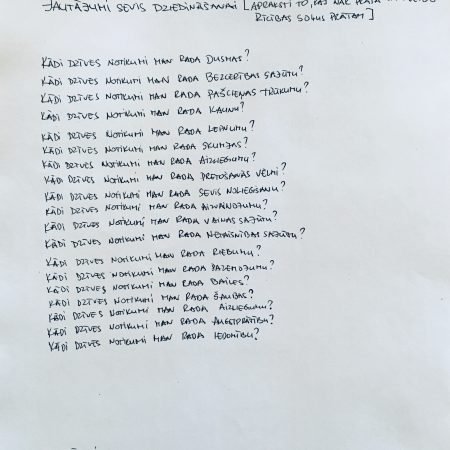 JAUTĀJUMI SEVIS DZIEDINĀŠANAI [APRAKSTI TO, KAS NĀK PRĀTĀ
RĪCĪBAS SOĻUS PRĀTAM]
KĀDI DZĪVES NOTIKUMI MAN RADA DUSMAS?
KĀDI DZĪVES NOTIKUMI MAN RADA BEZCERĪBAS SAJŪTU?
KĀDI DZĪVES NOTIKUMI MAN RADA PAŠCIEŅAS TRŪKUMU?
KĀDI DZĪVES NOTIKUMI MAN RADA KAUNU?
KĀDI DZĪVES NOTIKUMI MAN RADA LEPNUMU?
KĀDI DZĪVES NOTIKUMI MAN RADA SKUMJAS?
KĀDI DZĪVES NOTIKUMI MAN RADA AIZLIEGUMU?
KĀDI DZĪVES NOTIKUMI MAN RADA PRETOŠANĀS VĒLMI?
KĀDI DZĪVES NOTIKUMI MAN RADA SEVIS NOLIEGŠANU?
KĀDI DZĪVES NOTIKUMI MAN RADA AIZVAINOJUMU?
KĀDI DZĪVES NOTIKUMI MAN RADA VAINAS SAJŪTU?
KĀDI DZĪVES NOTIKUMI MAN RADA NETAISNĪBAS SAJŪTU?
KĀDI DZĪVES NOTIKUMI MAN RADA RIEBUMU?
KĀDI DZĪVES NOTIKUMI MAN RADA PAZEMOJUMU?
KĀDI DZĪVES NOTIKUMI MAN RADA BAILES?
KĀDI DZĪVES NOTIKUMI MAN RADA ŠAUBAS?
KĀDI DZĪVES NOTIKUMI MAN RADA AIZLIEGUMU?
KĀDI DZĪVES NOTIKUMI MAN RADA AUGSTPRĀTĪBU?
KĀDI DZĪVES NOTIKUMI MAN RADA IEDOMĪBU?